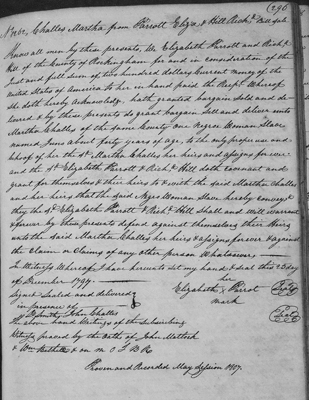 (296
No 162, Challes Martha from Parrott Eliza. & Hill Richd. Bill Sale
Know all men by these presents, We Elizabeth Parrott and Richd.
Hill of the County of Rockingham for and in consideration of the
Just and full sum of two hundred dollars Current money of the
United States of America to her in hand paid the Recpt. Whereof
she doth hereby acknowledg. hath granted bargain Sold and de-
liver'd & by these presents do grant bargain Sell and deliver unto
Martha Challes of the same County One Negroe Woman Slave
named Juno about forty years of age, to the only proper use and
behoof of her the sd. Martha Challes her heirs and assigns forever
and the sd. Elizabeth Parrott & Richd. Hill doth covenant and
grant for themselves & their heirs to & with the said Martha Challes
and her heirs that the said Negro Woman Slave hereby convey'd
they the sd. Elizabeth Parrott & Richd. Hill Shall and Will warrant
& forever by these presents defend against themselves their Heirs
unto the said Martha Challes her heirs & assigns forever & against
the Claim or Claims of any other person Whatsoever
In Witness Whereof I have hereunto set my hand & seal this 23 day
of December 1797.
her
Signed Sealed and delivered
Elizabeth x Parrot Seal
in presence of
mark
Dorothy John Challes
Seal
The above hand Writings of the Subscribing
Witness proved by the Oaths of John Matlock
& Wm
Proven and Recorded May Session 1807.